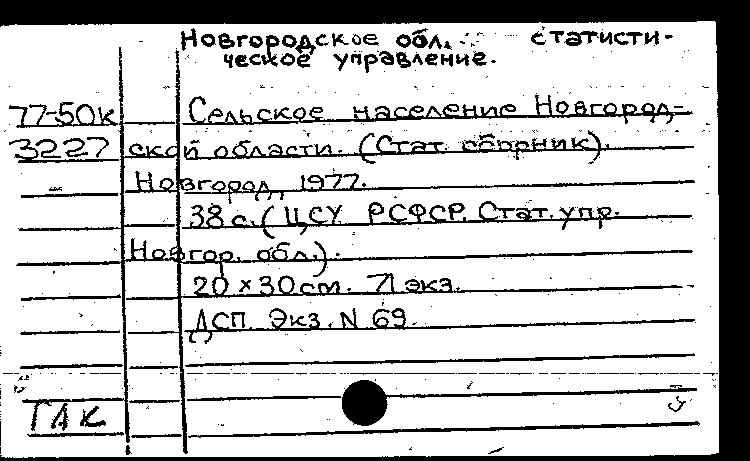 Новгородское обл. статисти-
ческое управление.
77-50к Сельское население Новгород-
3227 ской области. (Стат. сборник).
Новгород, 1977.
38 с. (ЦСУ РСФСР. Стат. упр.
Новгор. обл.).
20 × 30 см. 71 экз.
ДСП Экз. N 69
ГАК